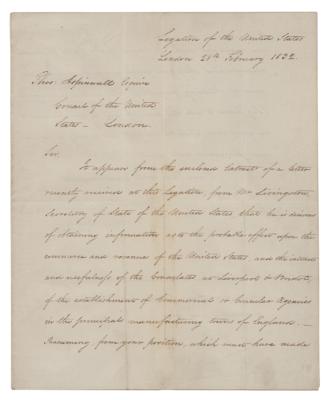 Legation of the United States
London 28th February 1832.
Thos. Aspinwall Esquire
Consul of the United
States – London.
Sir,
It appears from the enclosed Extract of a letter
recently received at this Legation, from Mr Livingston,
Secretary of State of the United States that he is desirous
of obtaining information as to the probable effect upon the
commerce and revenue of the United States and the interests
and usefulness of the Consulates at Liverpool &
of the establishment of Commercial or Consular Agencies
in the principal manufacturing towns of England. –
Presuming from your position, which must have made